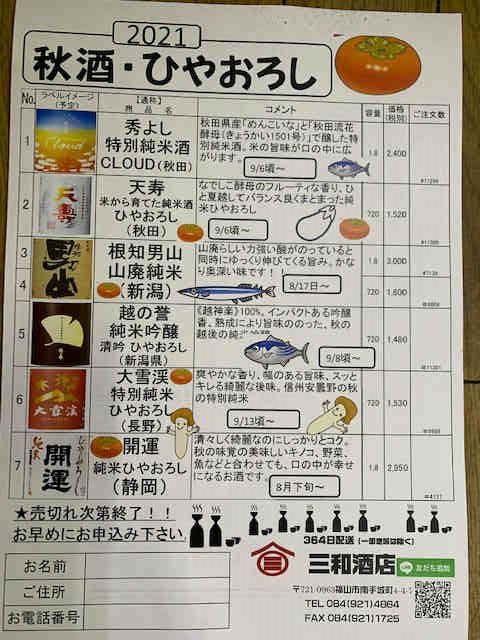 2021
秋酒・ひやおろし
No.
ラベルイメージ
(予定)
【通称】
商 品 名
コメント
容量
価格
(税別)
ご注文数
1
Cloud
秀よし
特別純米酒
CLOUD(秋田)
秋田県産「めんこいな」と「秋田流花
酵母(きょうかい1501号)」で醸した特
別純米酒。米の旨味が口の中に広
がります。
9/6頃～
1.8
2,400
2
天寿
天寿
米から育てた純米酒
ひやおろし
(秋田)
なでしこ酵母のフルーティな香り、ひ
と夏越してバランス良くまとまった純
米ひやおろし
9/6頃～
720
1,520
3
4
男山
根知男山
山廃純米
(新潟)
山廃らしい力強い酸がのっていると
同時にゆっくり伸びてくる旨み。かな
り奥深い味です！
8/17日～
1.8
3,000
720
1,600
5
越の誉
純米吟醸
清吟 ひやおろし
(新潟県)
《越神楽》100%。インパクトある吟醸
香、熟成により旨味ののった、秋の
越後の純
9/8頃～
720
1,480
6
大雪渓
大雪渓
特別純米
ひやおろし
(長野)
爽やかな香り、幅のある旨味、スッと
キレる綺麗な後味。信州安曇野の秋
の特別純米
9/13頃～
720
1,530
7
開運
開運
純米ひやおろし
(静岡)
清々しく綺麗なのにしっかりとコク。
秋の味覚の美味しいキノコ、野菜、
魚などと合わせても、口の中が幸せ
になるお酒です。
8月下旬～
1.8
2,950
★売切れ次第終了！！
お早めにお申込み下さい
364日配送(一部地域は除く)
お名前
ご住所
お電話番号
三和酒店
LINE
友だち追加
〒721-0963福山市南手城町4-4-7
TEL 084(921)4864
FAX 084(921)1725